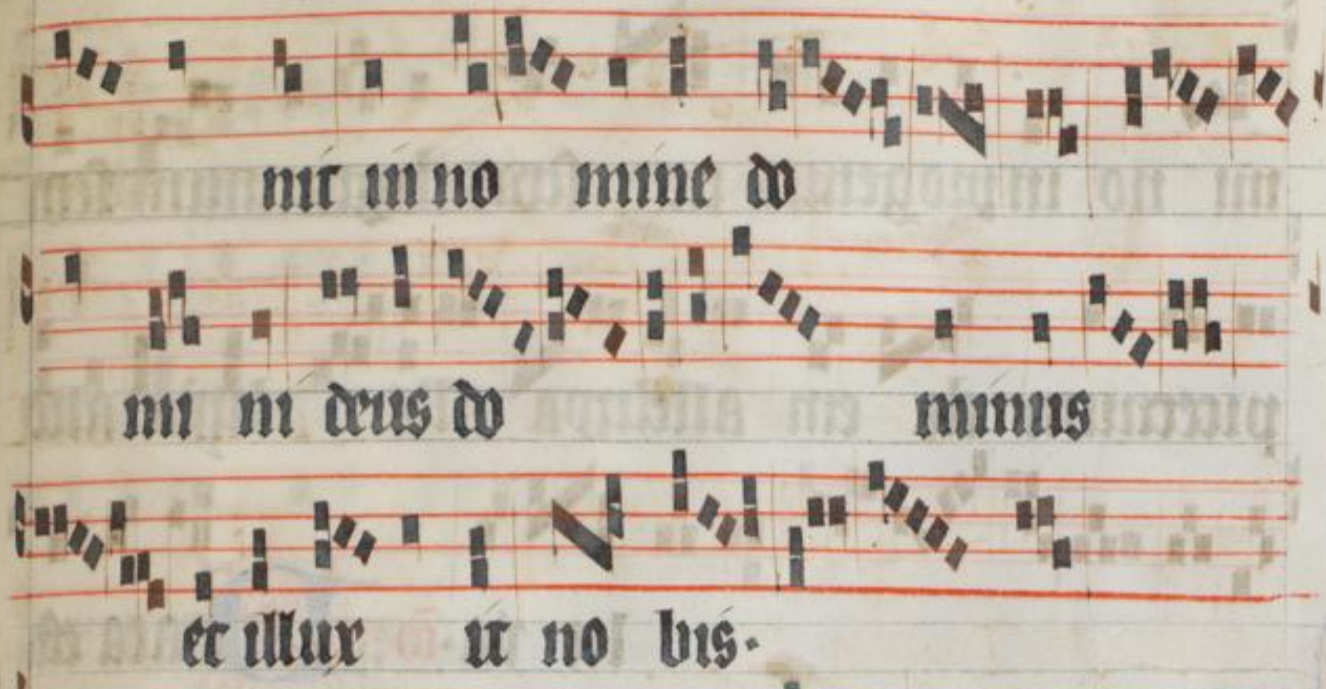 nit in no mine do
mi ni deus do minus
et illux it no bis.